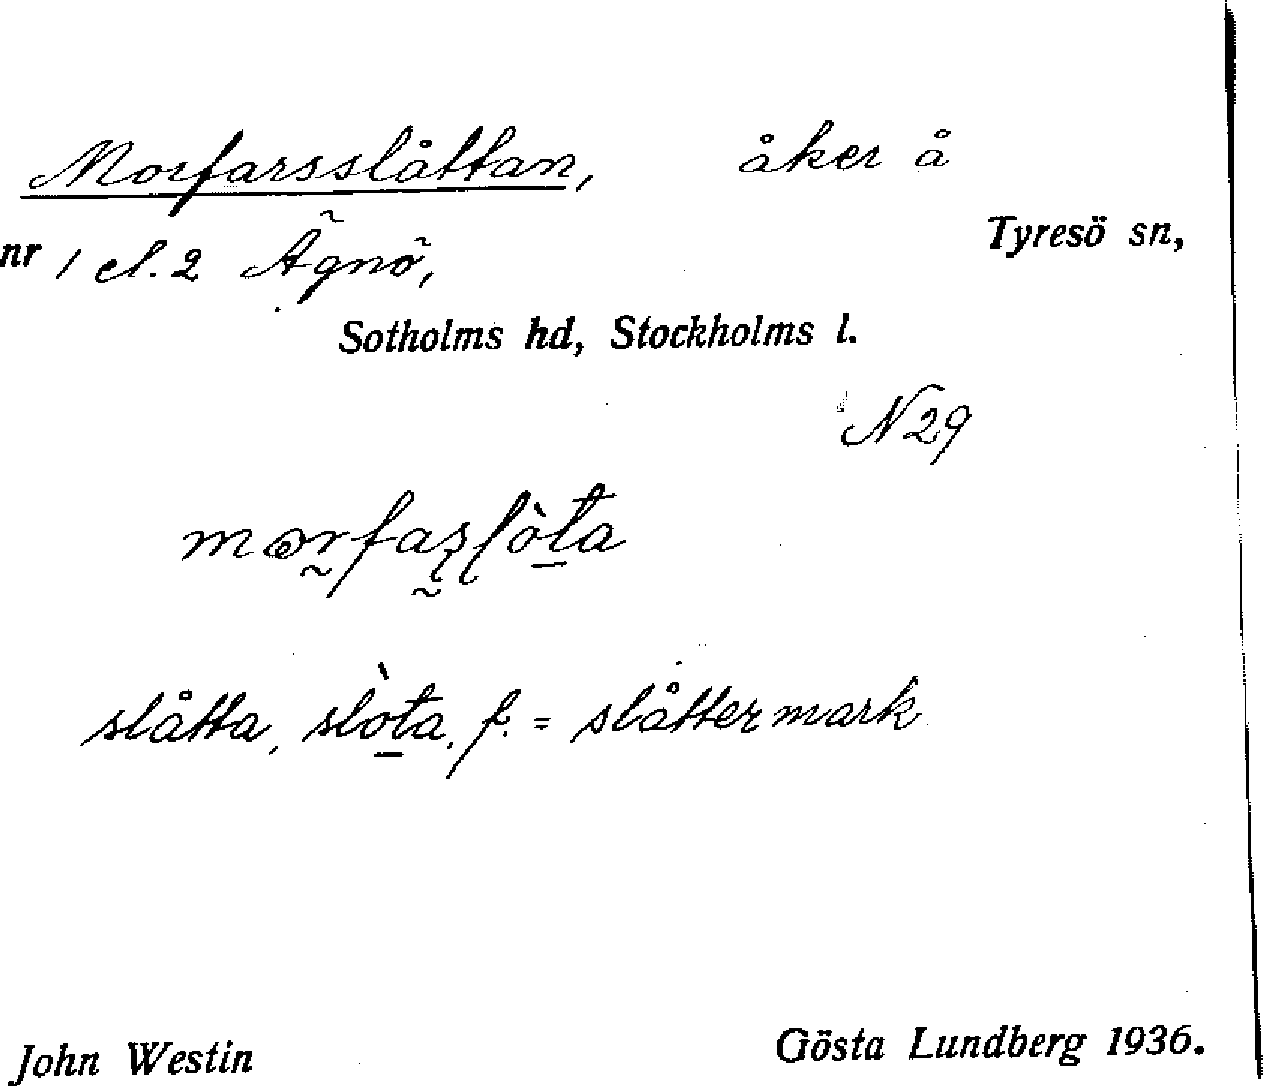 Morfarsslåttan, åker å
Tyresö sn,
nr 1 el. 2 Ägnö,
Sotholms hd, Stockholms l.
N 29
slåtta, slòta, f. = slåttermark
John Westin Gösta Lundberg 1936.